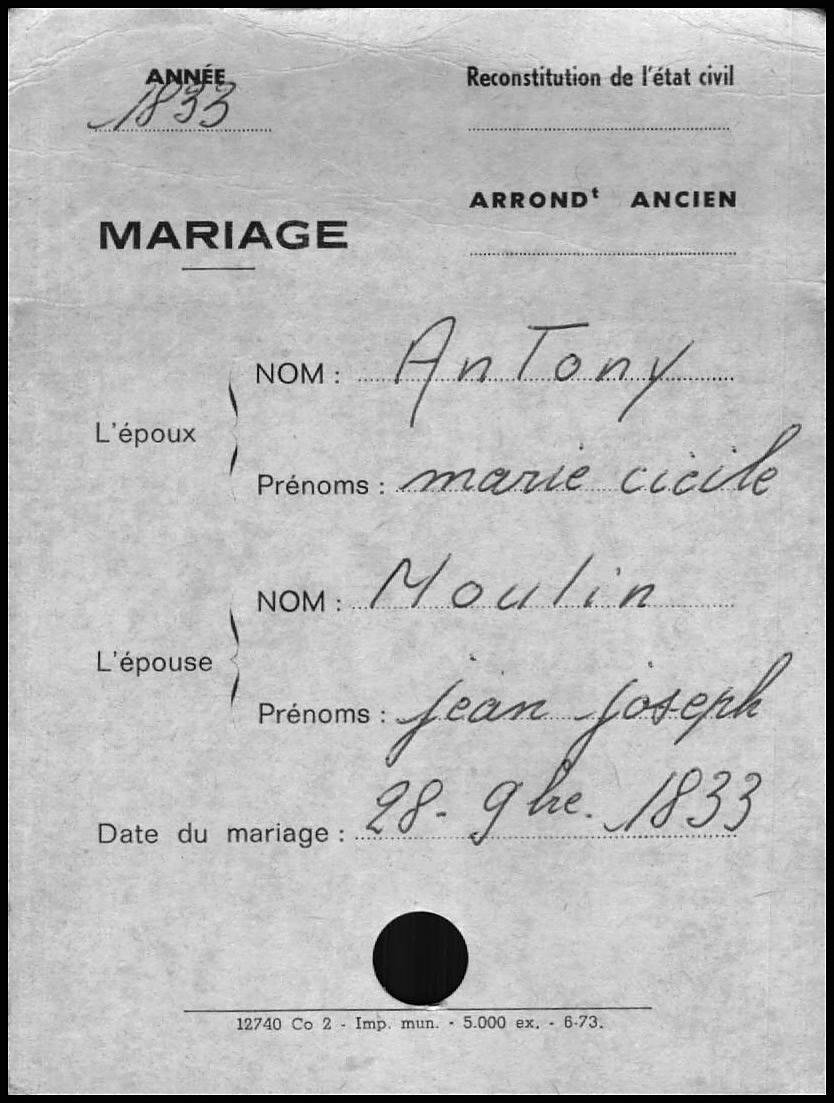 ANNÉE
1833
Reconstitution de l'état civil
ARRONDt ANCIEN
MARIAGE
L'époux
NOM : AnTony
Prénoms : marie cicile
L'épouse
NOM : Moulin
Prénoms : jean joseph
Date du mariage : 28- 9bre. 1833
12740 Co 2 - Imp. mun. - 5.000 ex. - 6-73.